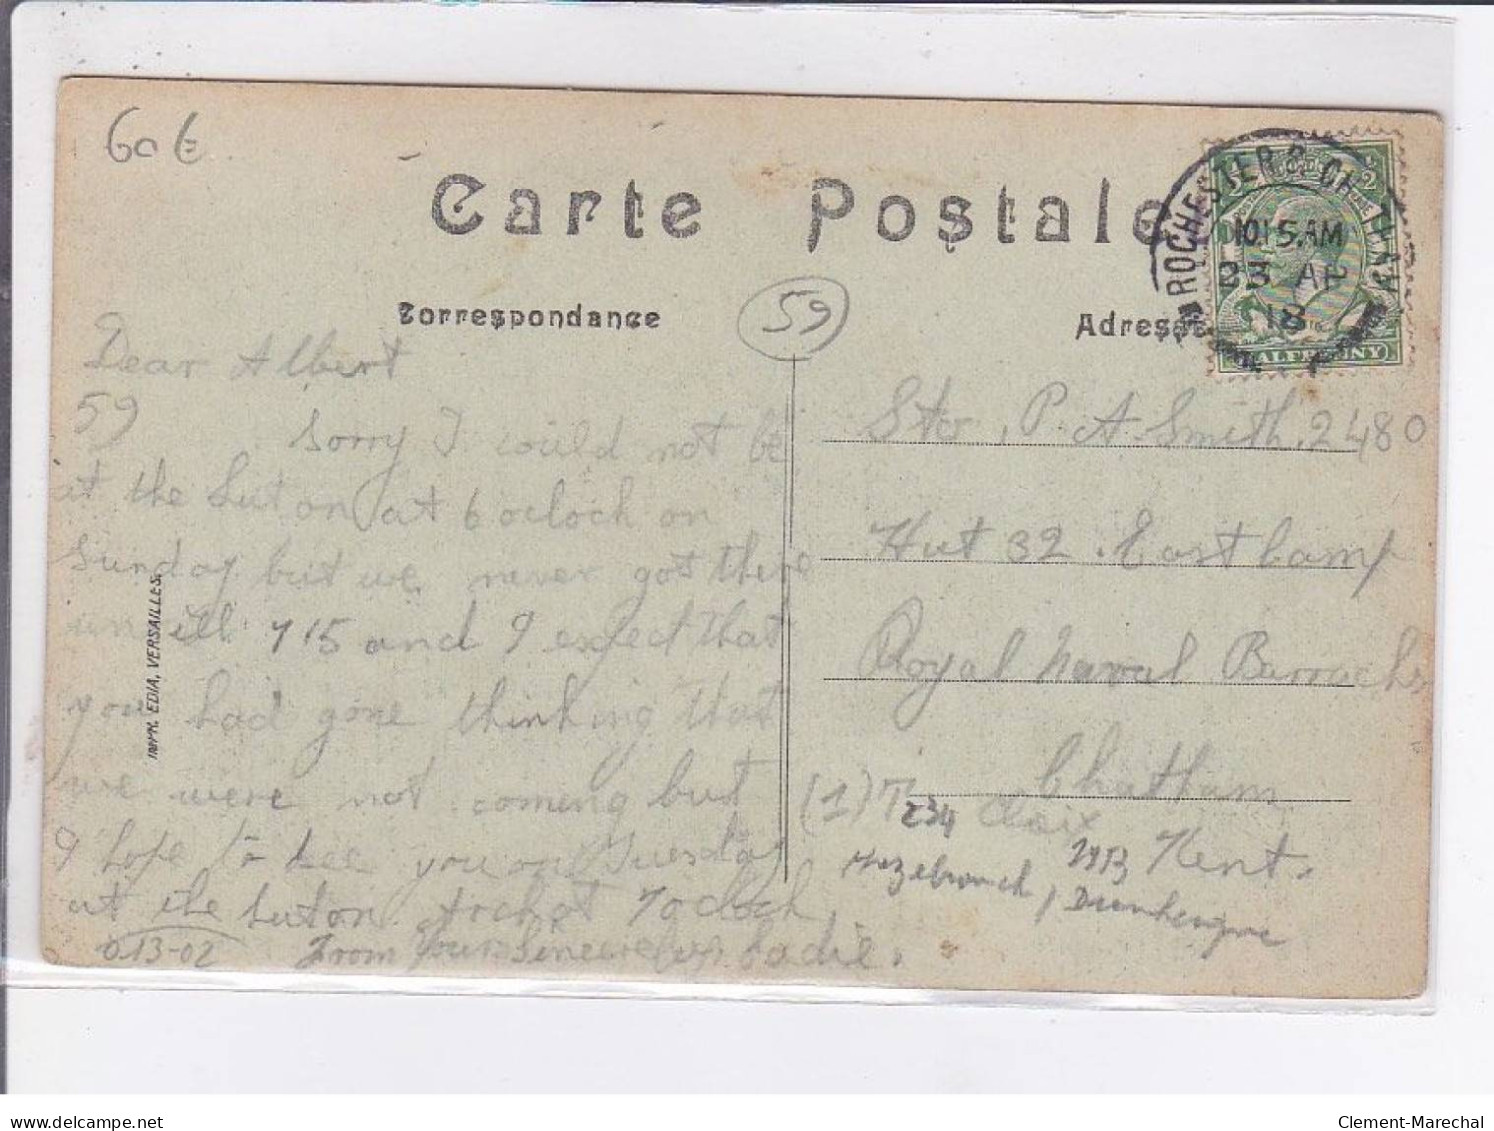 60 €
Carte Postale
Correspondance
59
Adresse
ROCHESTER
10.15.AM
23 AP
18
HALFPENNY
Dear Albert
59
Sorry I could not be
at the Luton at 6 oclock on
Sunday but we never got there
untill 715 and I expect that
you had gone thinking that
we were not coming but
I hope to see you on Tuesday
at the Luton Arch at 7 oclock,
From Your Sincerely
013-02
IMPR. EDIA, VERSAILLES.
P. A. Smith, 2480
Hut 32. East Camp
Royal Naval Barracks
Chatham
Kent.
(1) T 234
Hazebrouck / Dunkerque
delcampe.net
Clement-Marechal